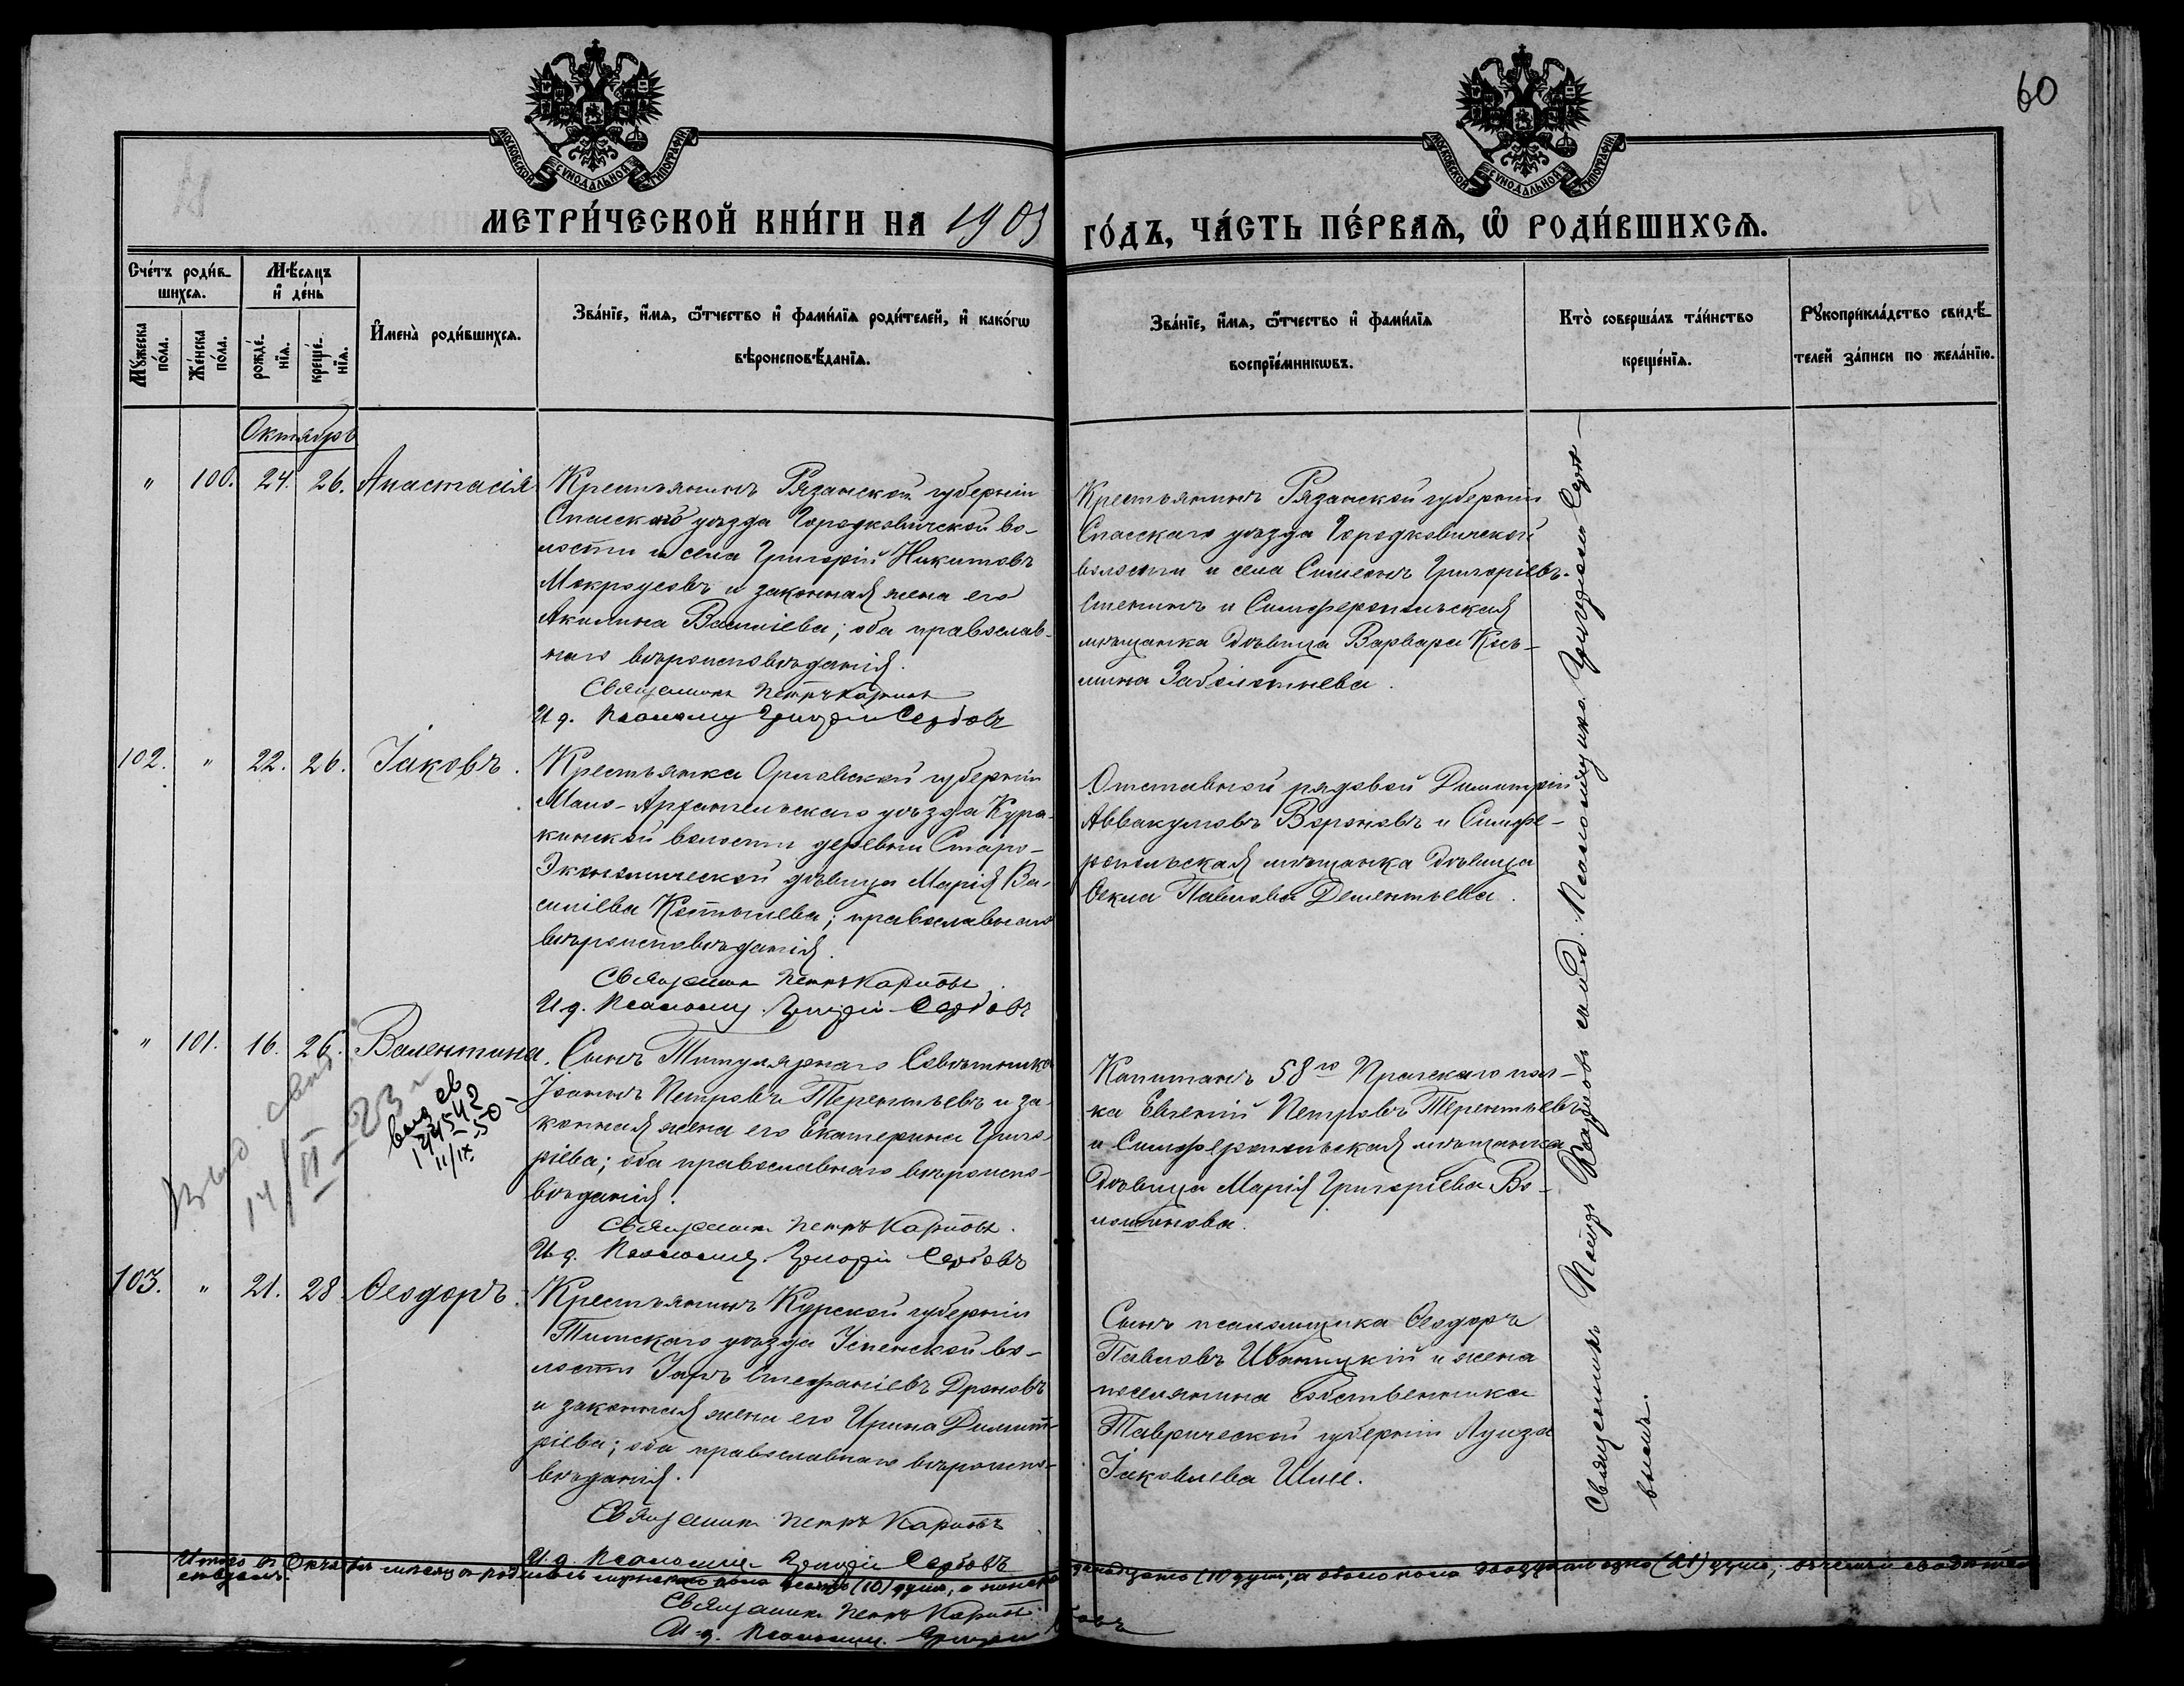 60
МОСКОВСКОЙ СѴНОДАЛЬНОЙ ТИПОГРАФІИ
МОСКОВСКОЙ СѴНОДАЛЬНОЙ ТИПОГРАФІИ
МЕТРИ́ЧЕСКОЙ КНИ́ГИ НА 1903
ГО́ДЪ, ЧА́СТЬ ПЕ́РВАѦ, Ѡ҆ РОДИ́ВШИХСѦ.
Сче́тъ роди́в-
шихсѧ.
Мѣ́сяцъ
и҆ де́нь
Мꙋ́жеска
по́ла.
Же́нска
по́ла.
рожде́-
нїѧ.
креще́-
нїѧ.
И҆мена̀ роди́вшихсѧ.
Зва́нїе, и҆́мѧ, ѻ҆́тчество и҆ фами́лїѧ роди́телей, и҆ како́гѡ
вѣроисповѣ́данїѧ.
Зва́нїе, и҆́мѧ, ѻ҆́тчество и҆ фами́лїѧ
воспрїе́мникѡвъ.
Кто̀ соверша́лъ та́инство
креще́нїѧ.
Рꙋкоприкла́дство свидѣ́-
телей за́писи по жела́нїю.
Октябрь
" 100. 24. 26. Анастасія
Крестьянинъ Рязанской губерніи
Спасскаго уѣзда Городковичской во-
лости и села Григорій Никитовъ
Мокроусовъ и законная жена его
Акилина Васильева; оба православ-
наго вѣроисповѣданія.
Священникъ Петръ Карповъ
И. д. Псаломщ. Григорій Сербовъ
Крестьянинъ Рязанской губерніи
Спасскаго уѣзда Городковичской
волости и села Симеонъ Григорьевъ
Степинъ и Симферопольская
мѣщанка дѣвица Варвара Козь-
мина Заболотнева.
102. " 22. 26. Іаковъ.
Крестьянка Орловской губерніи
Мало-Архангельскаго уѣзда Кура-
кинской волости деревни Старо-
Экономической дѣвица Марія Ва-
сильева; православнаго
вѣроисповѣданія.
Священникъ Петръ Карповъ.
И. д. Псаломщ. Григорій Сербовъ
Отставной рядовой Димитрій
Аввакумовъ Вороновъ и Симфе-
ропольская мѣщанка дѣвица
Ѳекла Павлова Дементьева.
" 101. 16. 26. Валентина.
Сынъ Титулярнаго Совѣтника
Іоаннъ Петровъ Терентьевъ и за-
конная жена его Екатерина Григо-
ріева; оба православнаго вѣроиспо-
вѣданія.
Священникъ Петръ Карповъ.
И. д. Псаломщ. Григорій Сербовъ
Капитанъ 58го Прагскаго пол-
ка Евгеній Петровъ Терентьевъ
и Симферопольская мѣщанка
дѣвица Марія Григоріева Во-
Выд. свид.
14/II-23 г
выд св
11/IX-50
103. " 21. 28 Ѳеодоръ.
Крестьянинъ Курской губерніи
Тимскаго уѣзда Успенской во-
лости Стефаніевъ Дроновъ
и законная жена его Ирина Димит-
ріева; оба православнаго вѣроиспо-
вѣданія.
Священникъ Петръ Карповъ
И. д. Псаломщ. Григорій Сербовъ
Сынъ псаломщика Ѳеодоръ
Павловъ Иваницкій и жена
поселянина собственника
Таврической губерніи Луиза
Іаковлева Шилл.
Священникъ Петръ Карповъ съ и. д. Псаломщика Григоріемъ Серб-
вымъ.
Итого въ Октябрѣ мѣсяцѣ родилось мужскаго пола десять (10) душъ, а обоего пола двадцать одна (21) душа; въ чемъ и свидѣтель-
ствуемъ.
Священникъ Петръ Карповъ
И. д. Псаломщ. Григорій Сербовъ